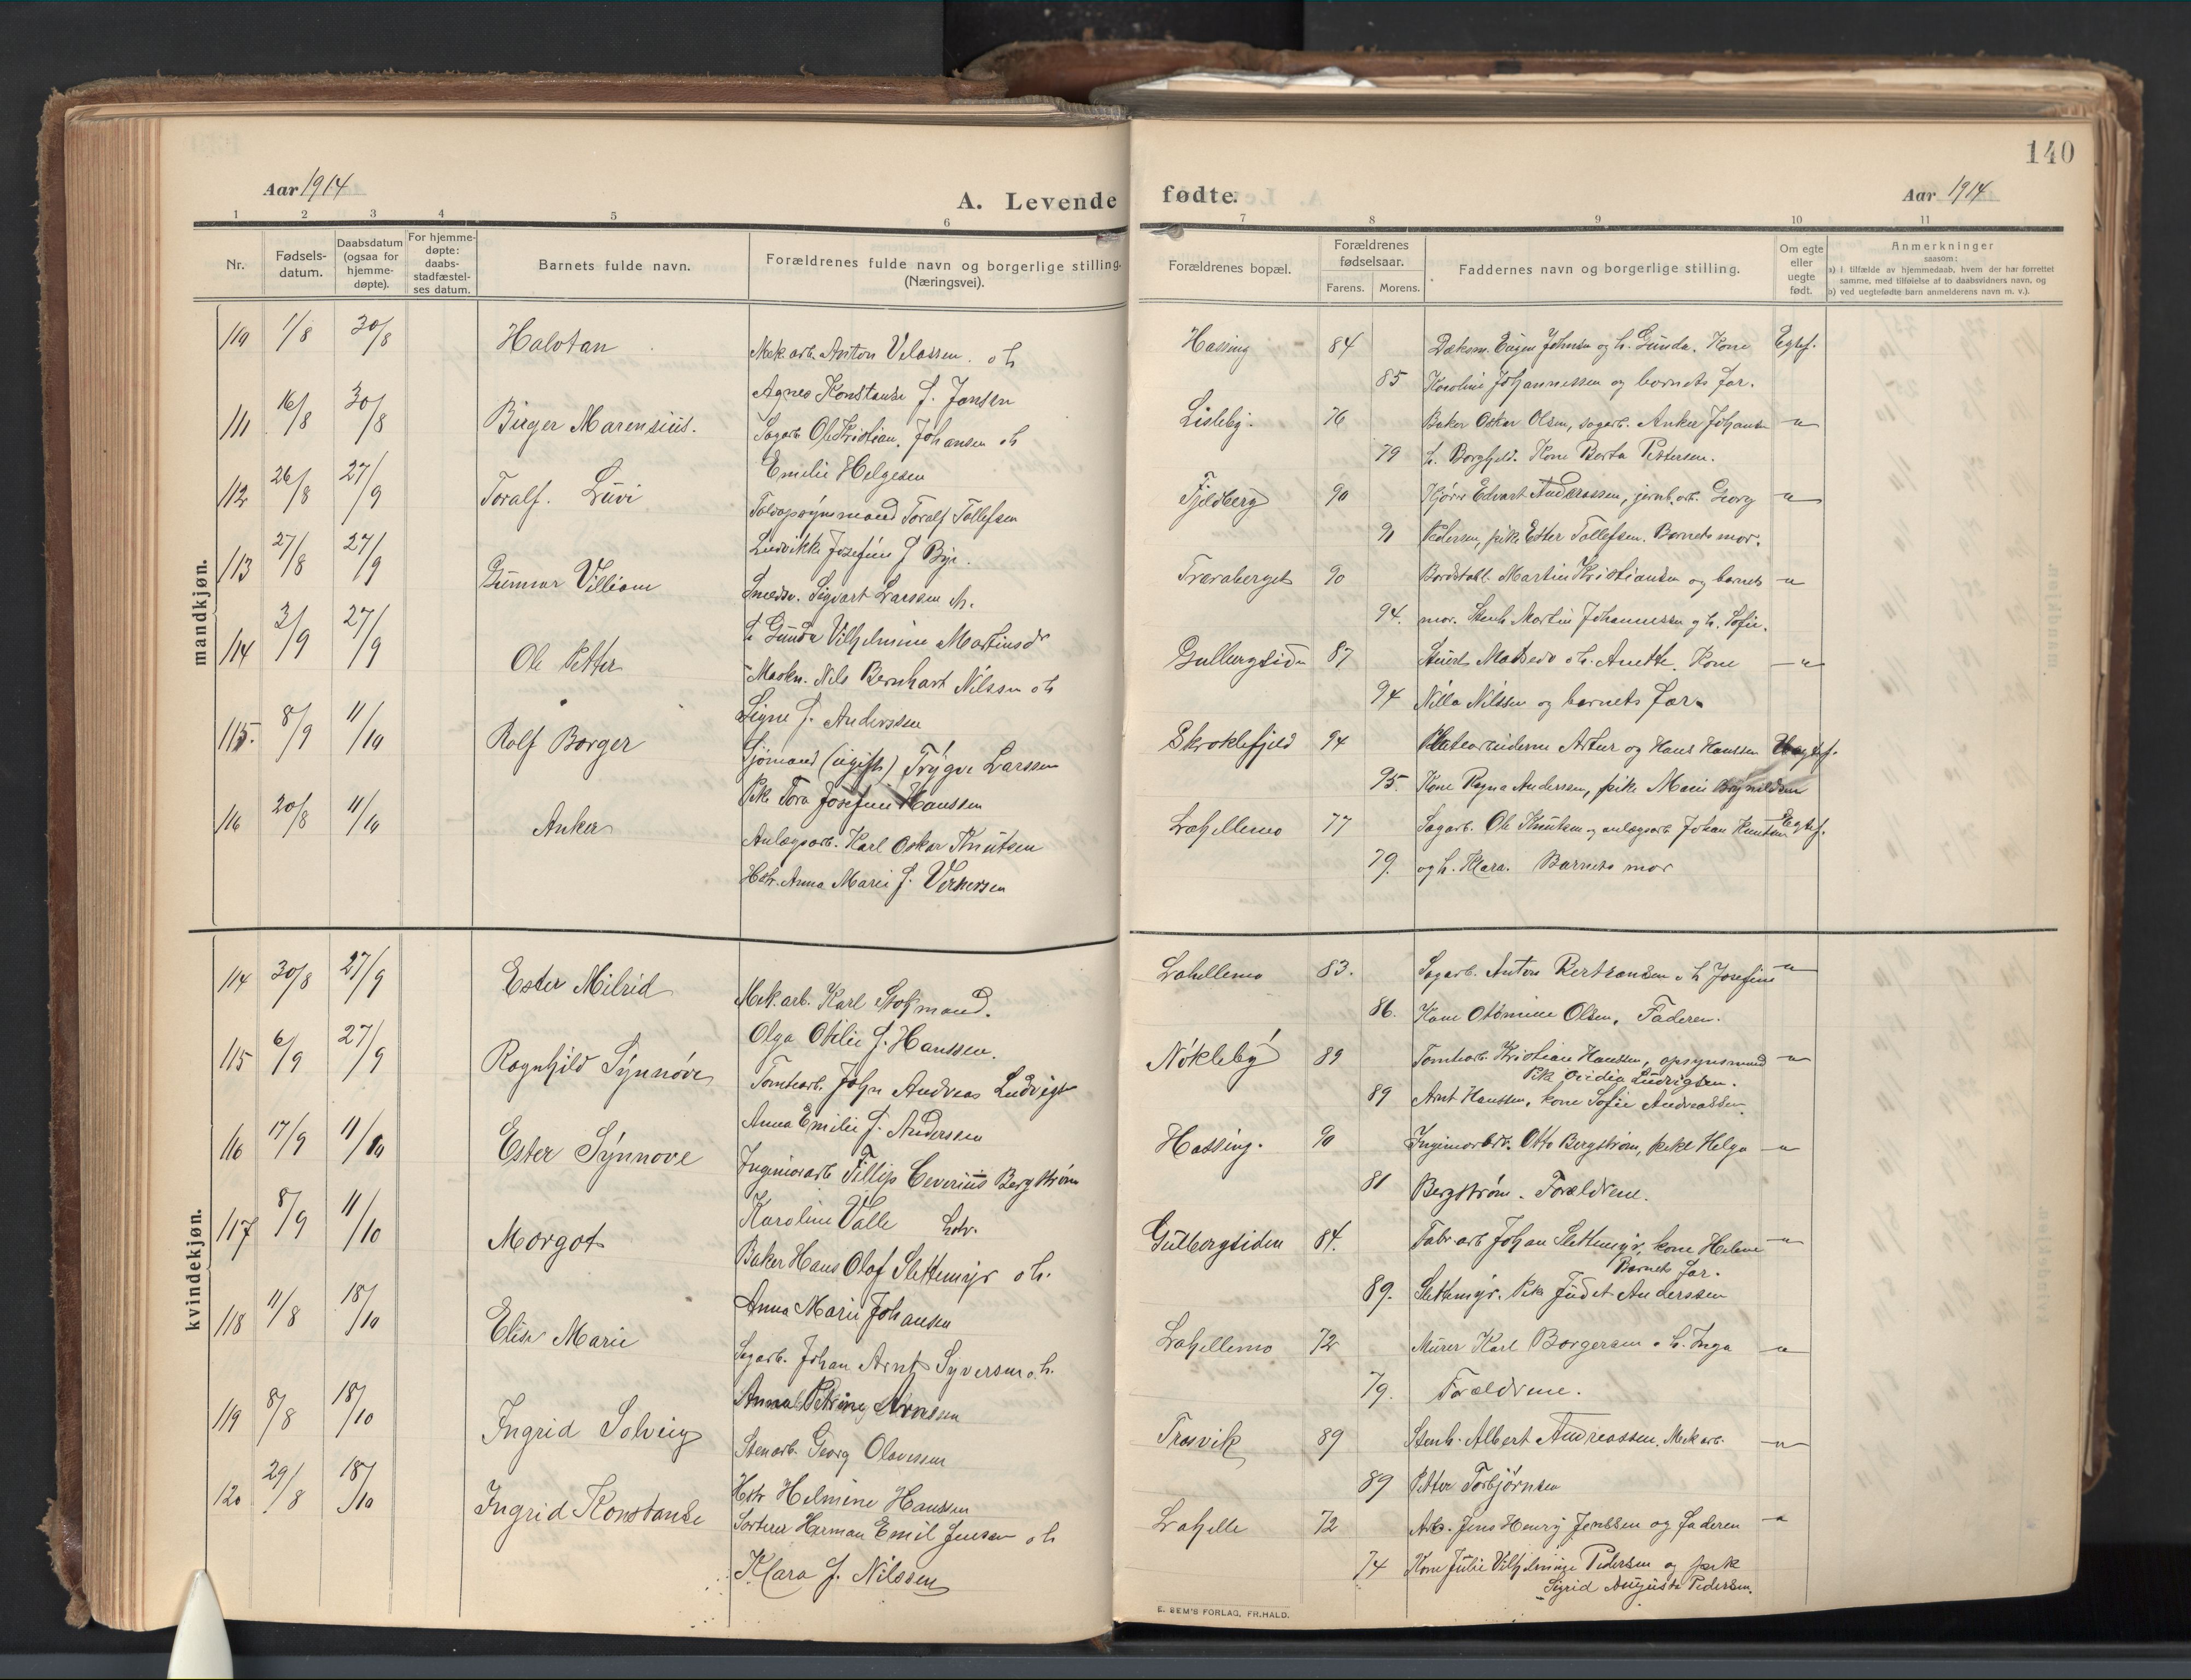 140
Aar 1914
A. Levende fødte.
Aar 1914
1 2 3 4 5 6 7 8 9 10 11
Nr.
Fødsels-
datum.
Daabsdatum
(ogsaa for
hjemme-
døpte).
For hjemme-
døpte:
daabs-
stadfæstel-
ses datum.
Barnets fulde navn.
Forældrenes fulde navn og borgerlige stilling.
(Næringsvei).
Forældrenes bopæl.
Forældrenes
fødselsaar.
Farens. Morens.
Faddernes navn og borgerlige stilling.
Om egte
eller
uegte
født.
Anmerkninger
saasom:
a) i tilfælde av hjemmedaab, hvem der har forrettet
samme, med tilføielse af to daabsvidners navn, og
b) ved uegtefødte barn anmelderens navn m. v.).
mandkjøn.
110 1/8 30/8 Halvtan Mek.arb. Anton Olassen. o h Hassing 84 Dæksm. Eugen Johnsen og h. Gunda. Kone Egtef.
Agnes Konstanse f. Jansen 85 Karoline Johannessen og barnets far.
111 16/8 30/8 Birger Marensius. Sagarb. Ole Kristian Johansen o h Lisleby. 76 Baker Oskar Olsen, sagarb. Anker Johansen —"—
Emilie Helgesen 79 h. Borghild. Kone Berta Pettersen.
112 26/8 27/9 Toralf. Luvi Toldopsynsmand Toralf Tollefsen Fjeldberg 90 Kjører Edvart Andreassen, jernb.arb. Georg —"—
Ludvikke Josefine f Bye. 91 Pedersen, pike Ester Tollefsen. Barnets mor.
113 27/8 27/9 Gunnar Villiam Smedsv. Sigvart Larssen h. Traraberget 90 Bordstabl. Martin Kristiansen og barnets —"—
Gunda Vilhelmine Martinsdr 94. mor. Stenh. Martin Johannessen og h. Sofie.
114 3/9 27/9 Ole Petter Maskn. Nils Bernhart Nilssen o h Gulbergsiden 87 Stuert Madsen o h. Anette. Kone —"—
Signe f. Anderssen 94 Nilla Nilssen og barnets far.
115. 8/9 11/10 Rolf Borger Sjømand (ugift) Trygve Larssen Skroklefjeld 94 Platearbeiderne Artur og Hans Hanssen Uegtef.
Pike Tora Josefine Hanssen 95. Kone Ragna Andersen, pike Marie Brynildsen
116 20/8 11/10 Anker Anlægsarb. Karl Oskar Knutsen Lahellemo 77 Sagarb. Ole Knutsen og anlægsarb Johan Knutsen Egtef.
Hstr. Anna Marie f. Vernersen 79. og h. Klara. Barnets mor
kvindekjøn.
114 30/8 27/9 Ester Milrid Mek.arb. Karl Stokmand. Lahellemo 83. Sagarb. Anton Bertransen o h Josefine —"—
Olga Otilie f. Hanssen. 86. Kone Otomine Olsen, Faderen.
115 6/9 27/9 Ragnhild Synnøve Tomtearb. John Andreas Ludvigs Nøkleby 89 Tomtearb Kristian Hanssen, opsynsmand —"—
Pike Ovidia Ludvigsen.
Anna Emilie f. Anderssen 89 Arnt Hanssen, kone Sofie Andreassen.
116 17/9 11/10 Ester Synnove Ingeniørarb Fillip Severinus Bergstrøm Hassing. 90 Ingeniørarb. Otto Bergstrøm, pike Helga —"—
Karoline Valle hstr. 81 Bergstrøm. Forældrene.
117 8/9 11/10 Margot Baker Hans Olaf Slettemyr o h. Gulbergsiden 84. Fabr.arb Johan Slettemyr, kone Helene —"—
Barnets far.
Anna Marie Johansen 89. Slettemyr. Pike Judet Anderssen
118 11/8 18/10 Elise Marie Sagarb. Johan Arnt Syversen o h. Lahellemo 72 Murer Karl Borgersen o h. Inga —"—
Anna Petrine Arnesen 79. Forældrene.
119 8/8 18/10 Ingrid Solveig Stenarb. Georg Olavessen Trosvik 89 Stenh. Albert Andreassen, Mek arb. —"—
Hstr Helmine Hanssen 89 Petter Torbjørnsen
120 29/8 18/10 Ingrid Konstanse Sorterer Herman Emil Jensen o h Lahelle 72 Arb. Jens Henry Jenssen og faderen —"—
Klara f. Nilssen 74 Kone Julie Vilhelmine Pedersen og pike
Sigrid Auguste Pedersen.
E. SEM'S FORLAG, FR.HALD.